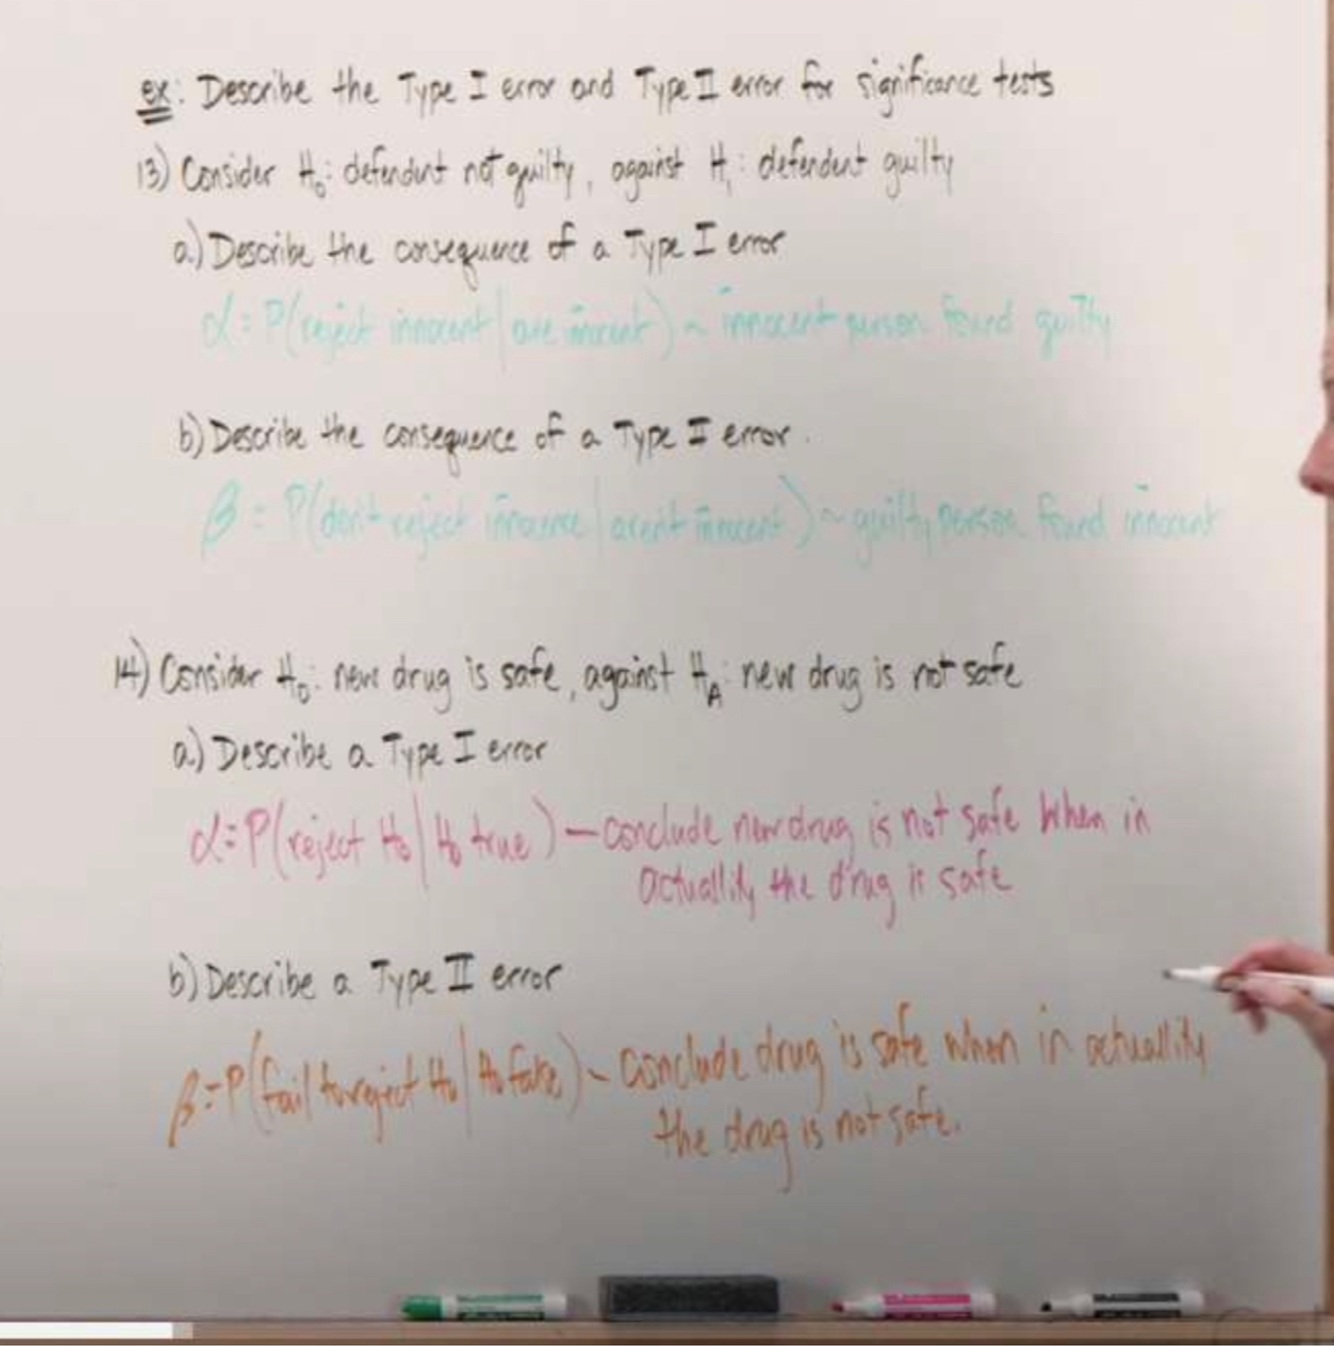 ex: Describe the Type I error and Type II error for significance tests
13) Consider H₀: defendent not guilty, against H₁: defendent guilty
a.) Describe the consequence of a Type I error
α = P(reject innocent | are innocent) ~ innocent person found guilty
b) Describe the consequence of a Type II error.
β = P(don't reject innocence | aren't innocent) ~ guilty person found innocent
14) Consider H₀: new drug is safe, against H_A: new drug is not safe
a.) Describe a Type I error
α = P(reject H₀ | H₀ true) – conclude new drug is not safe when in
actuallity the drug is safe
b) Describe a Type II error
β = P(fail to reject H₀ | H₀ false) ~ conclude drug is safe when in actuallity
the drug is not safe.